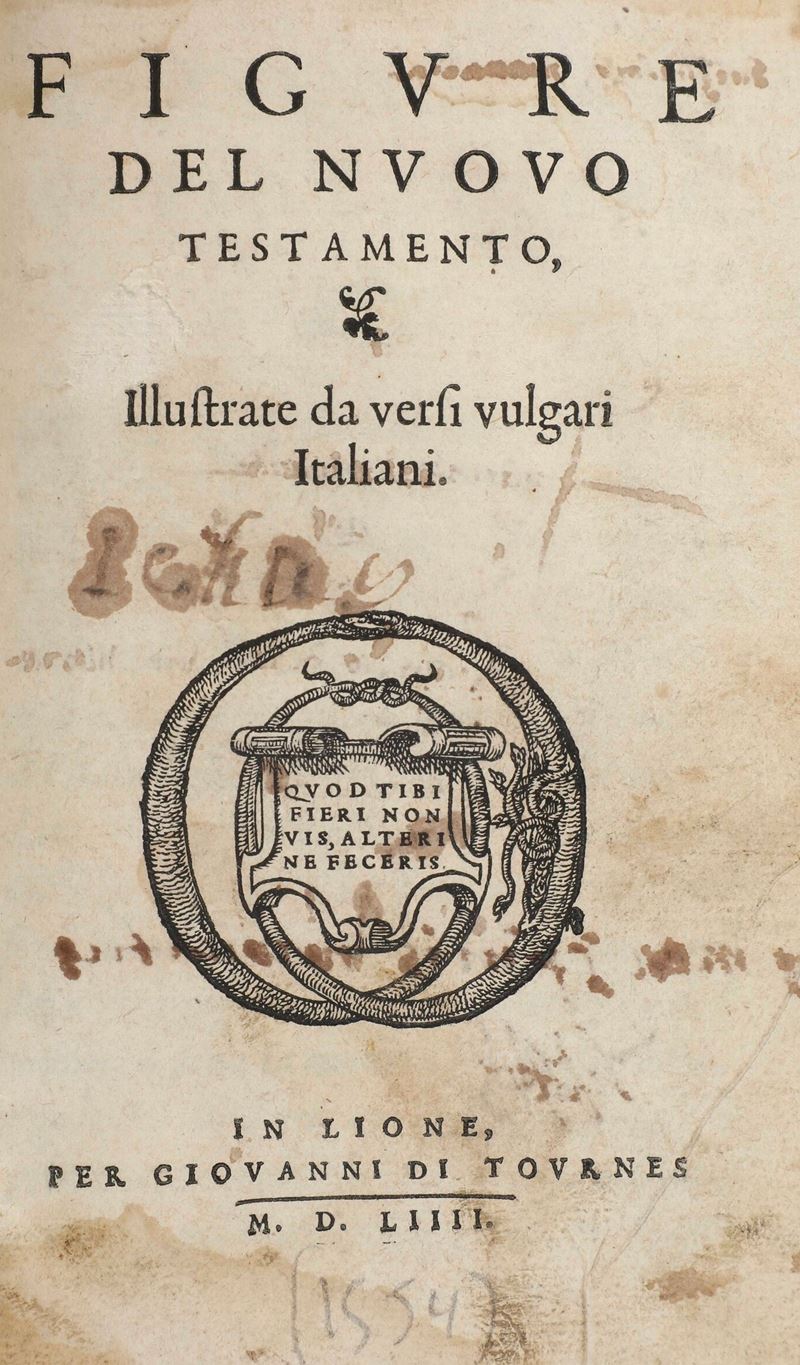 FIGVRE
DEL NVOVO
TESTAMENTO,
Illuſtrate da verſi vulgari
Italiani.
QVOD TIBI
FIERI NON
VIS, ALTERI
NE FECERIS.
IN LIONE,
PER GIOVANNI DI TOVRNES
M. D. LIIII.
[1554]